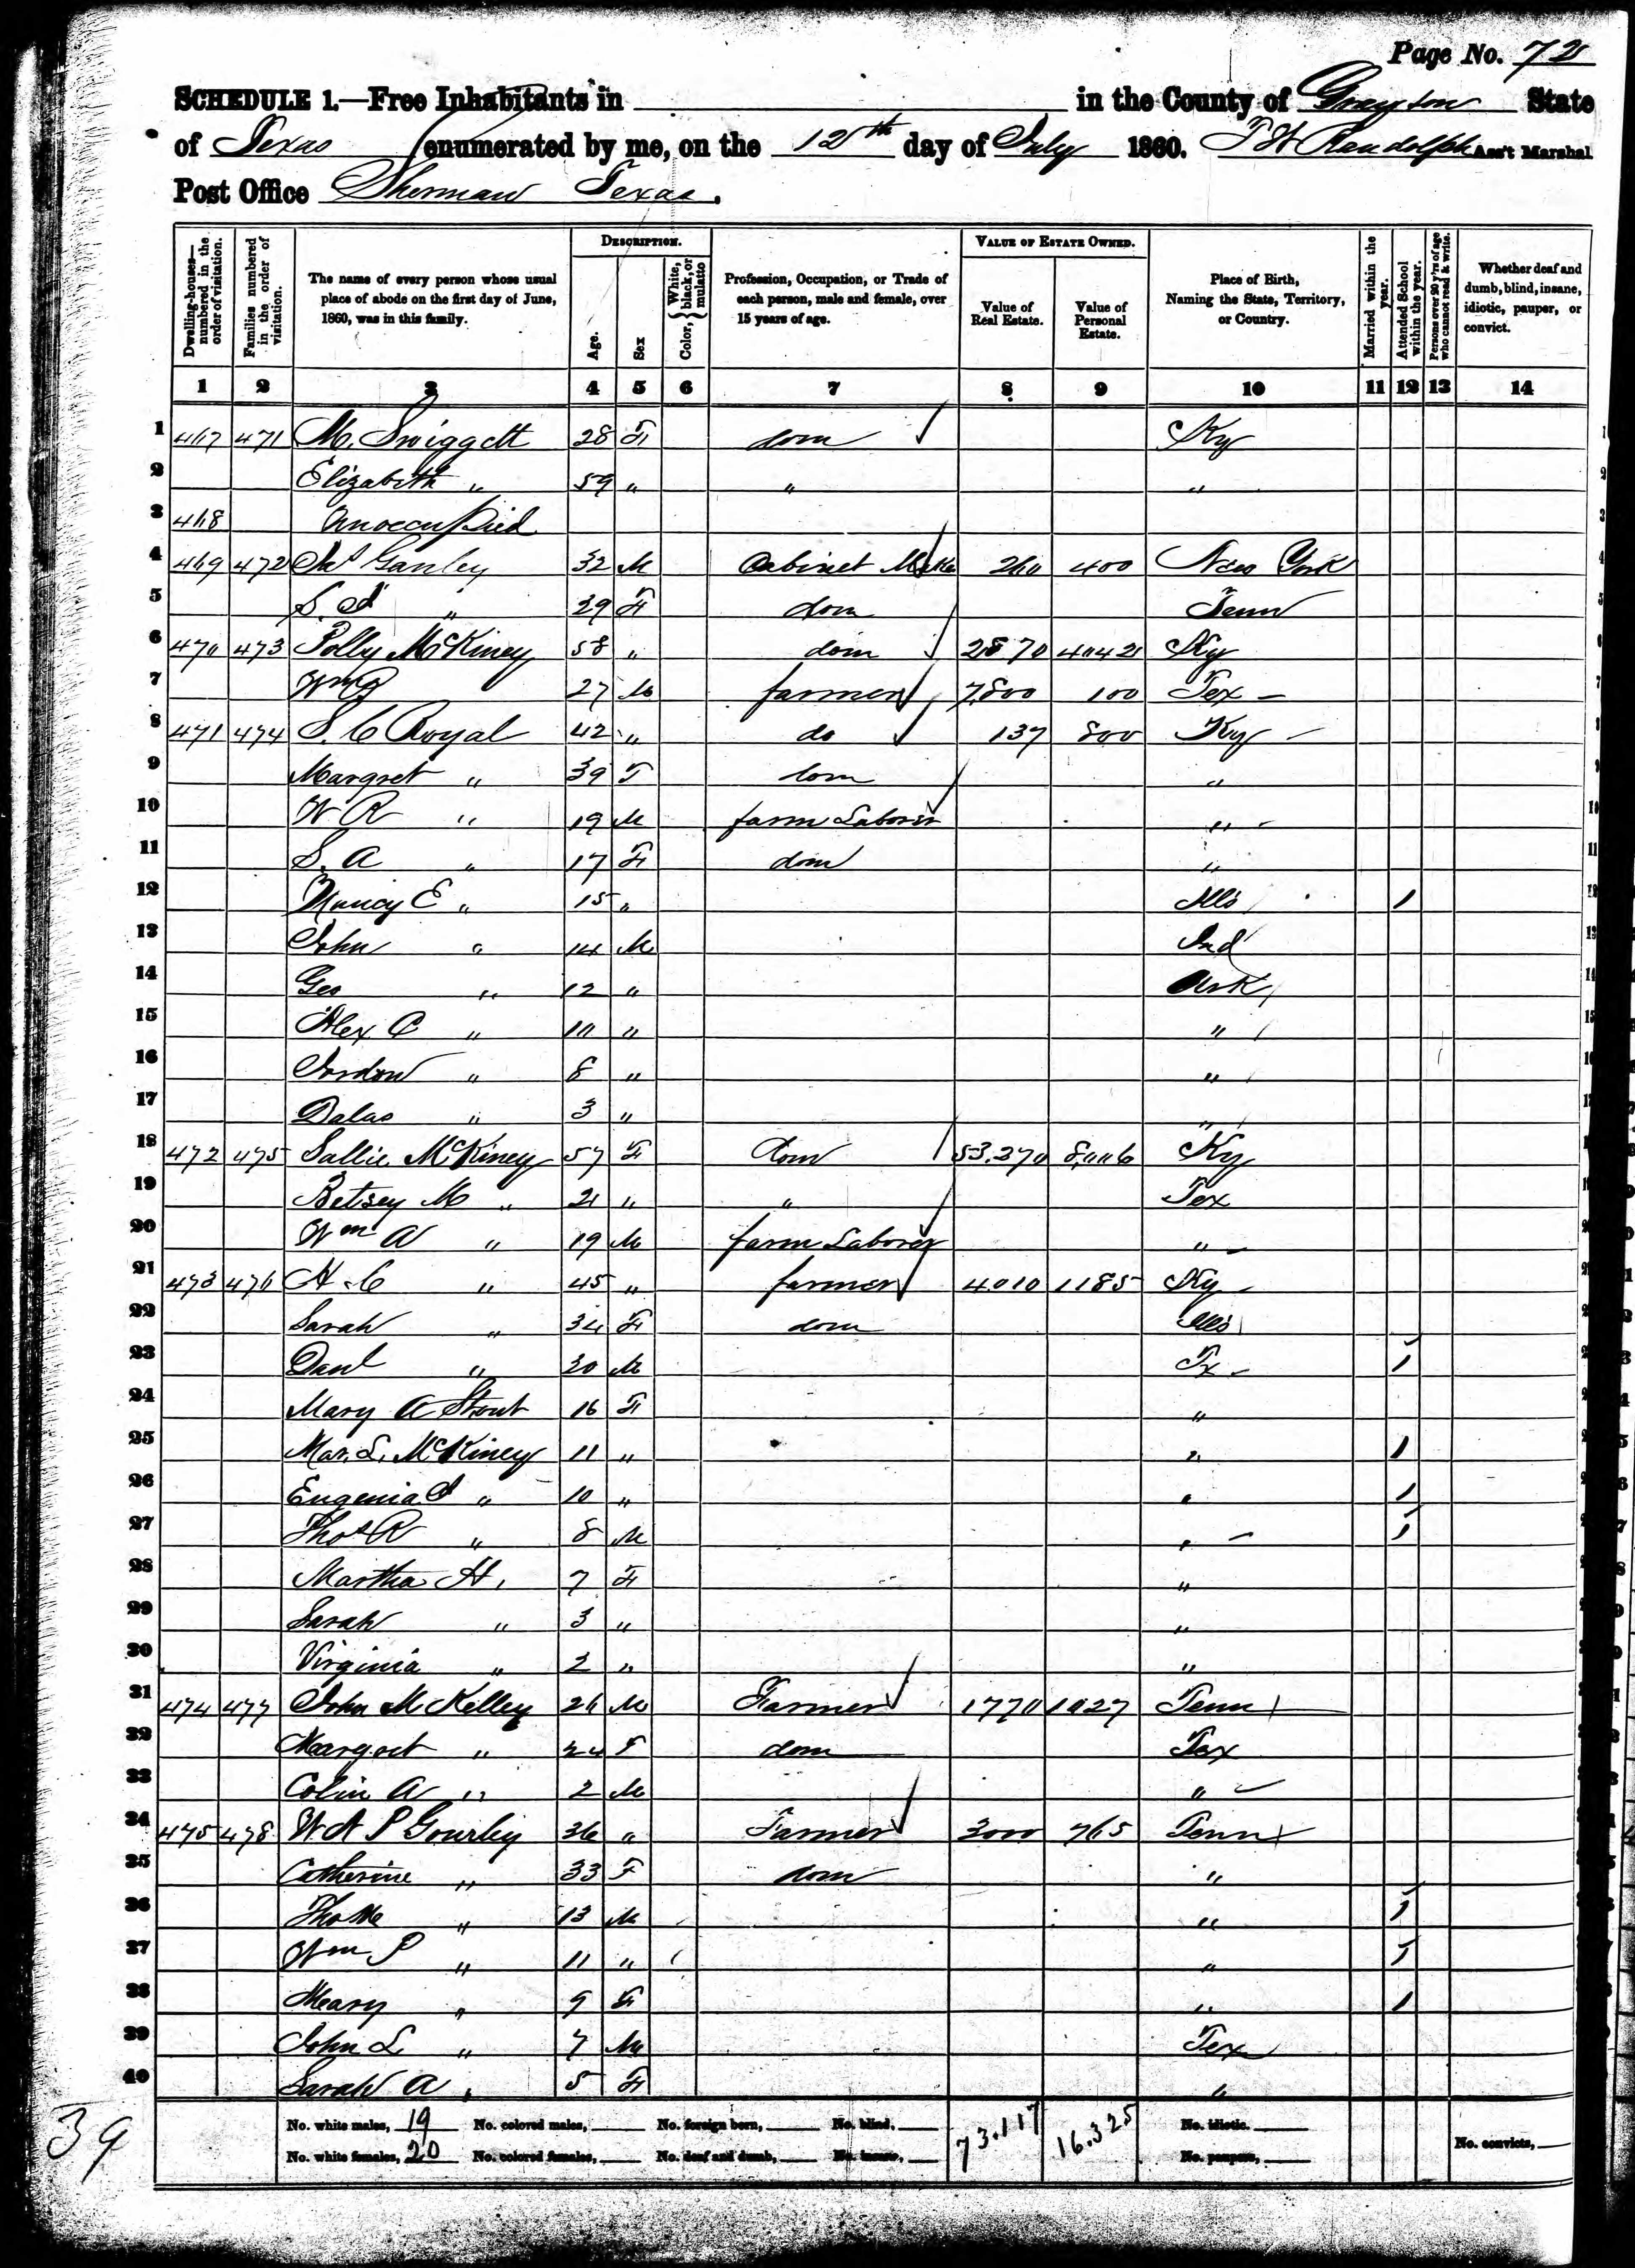 Page No. 72
SCHEDULE 1.—Free Inhabitants in ______ in the County of Grayson State
of Texas enumerated by me, on the 12th day of July 1860. T W Randolph Ass't Marshal
Post Office Sherman Texas.
Dwelling-houses—numbered in the order of visitation. Families numbered in the order of visitation. The name of every person whose usual place of abode on the first day of June, 1860, was in this family. DESCRIPTION. Age. Sex Color, White, black, or mulatto Profession, Occupation, or Trade of each person, male and female, over 15 years of age. VALUE OF ESTATE OWNED. Value of Real Estate. Value of Personal Estate. Place of Birth, Naming the State, Territory, or Country. Married within the year. Attended School within the year. Persons over 20 y'rs of age who cannot read & write. Whether deaf and dumb, blind, insane, idiotic, pauper, or convict.
1 2 3 4 5 6 7 8 9 10 11 12 13 14
1 467 471 M. Swiggett 28 F dom Ky
2 Elizabeth " 59 " " "
3 468 Unoccupied
4 469 472 Jas Ganley 32 M Cabinet Mak 260 400 New York
5 S. J " 29 F dom Tenn
6 470 473 Polly McKiney 58 " dom 2870 4042 Ky
7 Wm 27 M farmer 7,800 100 Tex
8 471 474 S. C Royal 42 " do 137 800 Ky
9 Margret " 39 F dom "
10 W R " 19 M farm Laborer "
11 S. A " 17 F dom "
12 Nancy E " 15 " Ills 1
13 John " 14 M Ind
14 Geo " 12 " Ark
15 Alex C " 10 " "
16 Jordon " 8 " "
17 Dalas " 3 " "
18 472 475 Sallie McKiney 57 F dom 53.270 8,006 Ky
19 Betsey M " 21 " " Tex
20 Wm A " 19 M farm Laborer "
21 473 476 H. C " 45 " farmer 4010 1185 Ky
22 Sarah " 34 F dom Ills
23 Danl " 20 M Tx 1
24 Mary A Stout 16 F "
25 Mar. L. McKiney 11 " " 1
26 Eugenia J " 10 " " 1
27 Thos R " 8 M " 1
28 Martha H. 7 F "
29 Sarah " 3 " "
30 Virginia " 2 " "
31 474 477 John M Kelley 26 M Farmer 1770 1027 Tenn
32 Margret " 24 F dom Tex
33 Colin A " 2 M "
34 475 478 W A P Gourley 36 " Farmer 3000 765 Tenn
35 Catherine " 33 F dom "
36 Tho " 13 M " 1
37 Wm P " 11 " " 1
38 Meary " 9 F " 1
39 John L " 7 M Tex
40 Sarah A " 5 F "
No. white males, 19 No. colored males, No. foreign born, No. blind, 73.117 16.325 No. idiotic.
No. white females, 20 No. colored females, No. deaf and dumb, No. insane, No. paupers, No. convicts,
39